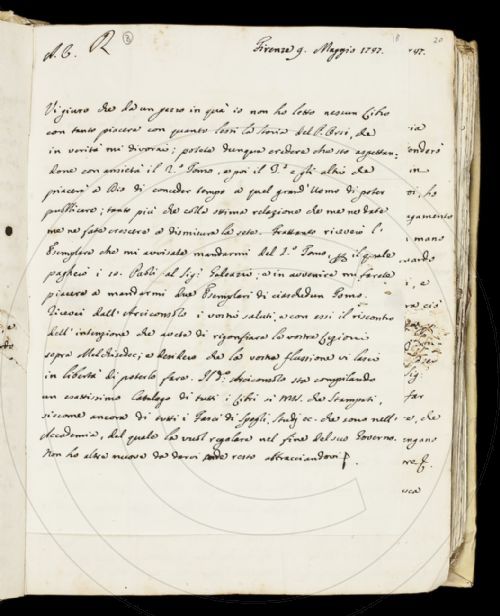 A. C. R
Firenze 9. Maggio 1797.
Vi giuro che da un pezzo in quà io non ho letto nessun Libro
con tanto piacere con quanto lessi la Storia del P. Desi, che
in verità mi divorai; potete dunque credere che sto aspettan-
done con ansietà il 2.º Tomo, e poi il 3.º e gli altri che
piacerà a Dio di conceder tempo a quel grand'Uomo di poter
pubblicare; tanto più che colla ottima relazione che me ne date
me ne fate crescere a dismisura la sete. Frattanto riceverò l'
Esemplare che mi avvisate mandarmi del 2.º Tomo, il quale
pagherò i 10. Paoli al Sig. Galeazzi, e in avvenire mi farete
piacere a mandarmi due Esemplari di ciaschedun Tomo.
Ricevei dall'Arciconsolo i vostri saluti, e con essi il riscontro
dell'intenzione che avete di
sopra Melchisedec; e desidero che la vostra flussione vi lasci
in libertà di poterlo fare. Il Arciconsolo sta compilando
un esattissimo Catalogo di tutti i Libri sì MSS. che Stampati,
siccome ancora di tutti i Fasci di Spogli, Studj ec. che sono nell'
Accademia, del quale la vuol regalare nel fine del suo Governo.
Non ho altre nuove da darvi onde resto abbracciandovi